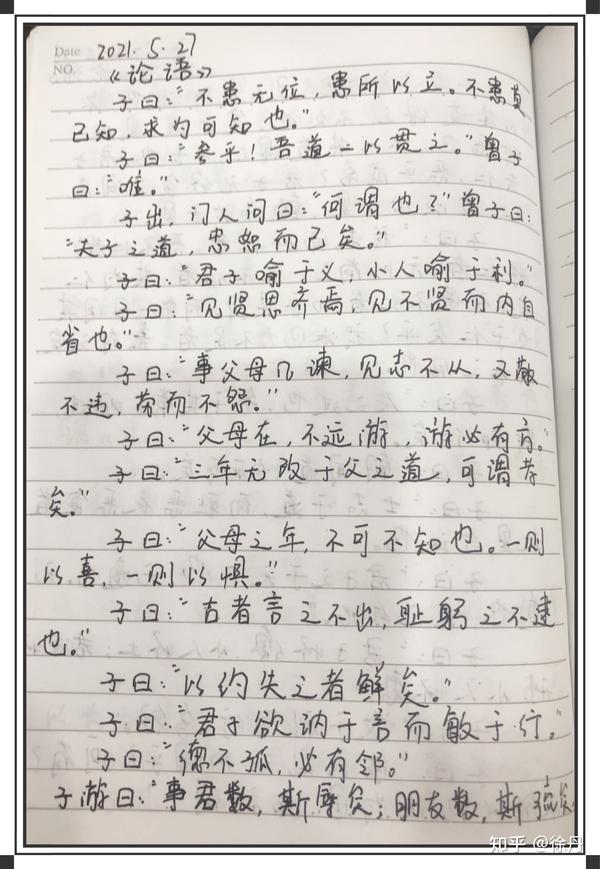 Date 2021.5.27
NO.
《论语》
子曰:“不患无位,患所以立。不患莫
己知,求为可知也。”
子曰:“参乎!吾道一以贯之。”曾子
曰:“唯。”
子出,门人问曰:“何谓也?”曾子曰:
“夫子之道,忠恕而已矣。”
子曰:“君子喻于义,小人喻于利。”
子曰:“见贤思齐焉,见不贤而内自
省也。”
子曰:“事父母几谏,见志不从,又敬
不违,劳而不怨。”
子曰:“父母在,不远游,游必有方。”
子曰:“三年无改于父之道,可谓孝
矣。”
子曰:“父母之年,不可不知也。一则
以喜,一则以惧。”
子曰:“古者言之不出,耻躬之不逮
也。”
子曰:“以约失之者鲜矣。”
子曰:“君子欲讷于言而敏于行。”
子曰:“德不孤,必有邻。”
子游曰:“事君数,斯辱矣;朋友数,斯疏矣
知乎 @徐丹